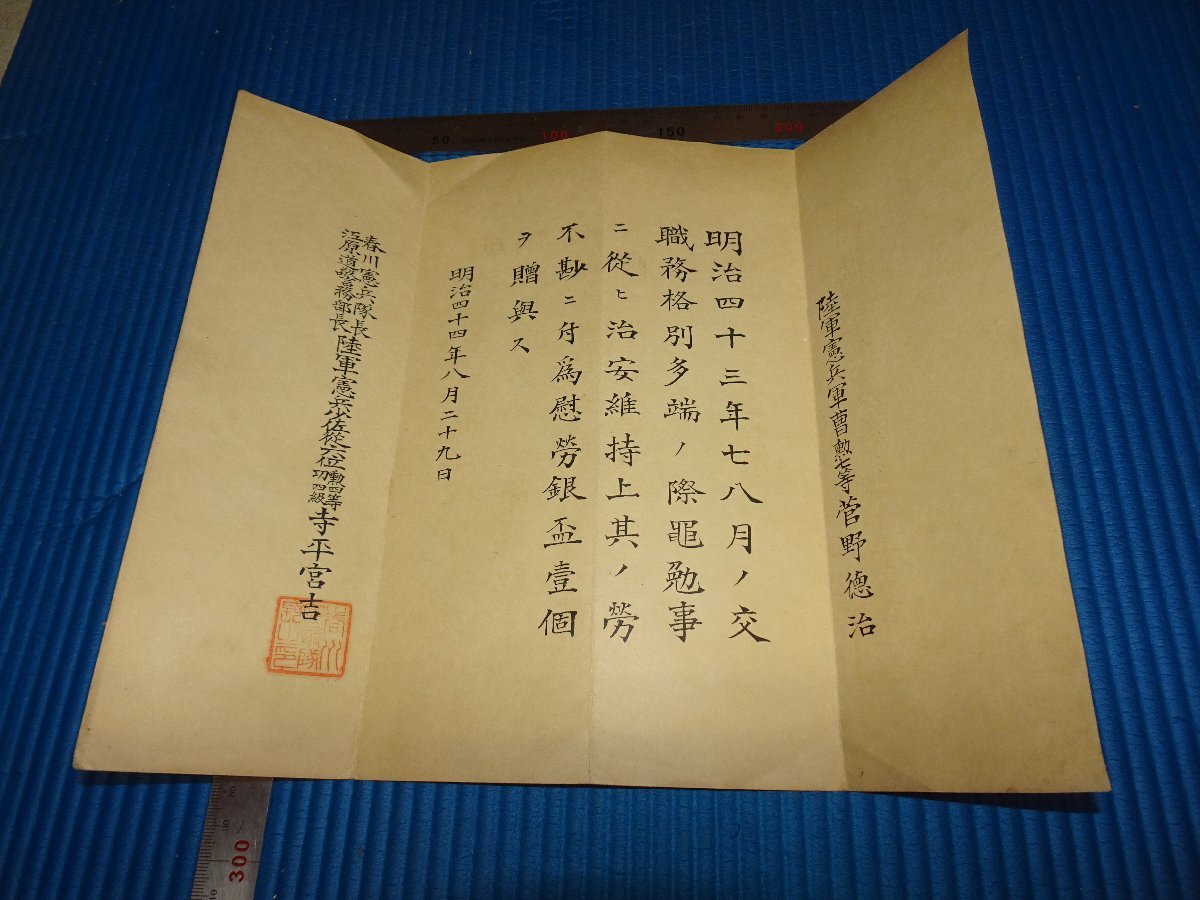 陸軍憲兵軍曹勲七等菅野德治
明治四十三年七八月ノ交
職務格別多端ノ際黽勉事
ニ從ヒ治安維持上其ノ勞
不尠ニ付爲慰勞銀盃壹個
ヲ贈與ス
明治四十四年八月二十九日
春川憲兵隊長
江原道警務部長
陸軍憲兵少佐從六位
勳四等
功四級
寺平宮吉
50
100
150
200
300